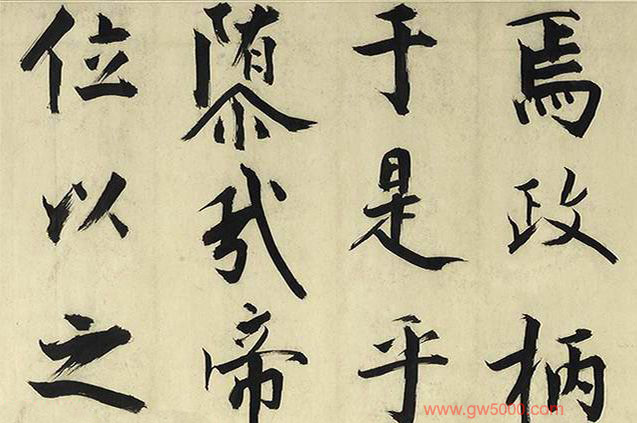 焉政柄
于是乎
隳哉帝
位以之
www.gw5000.com